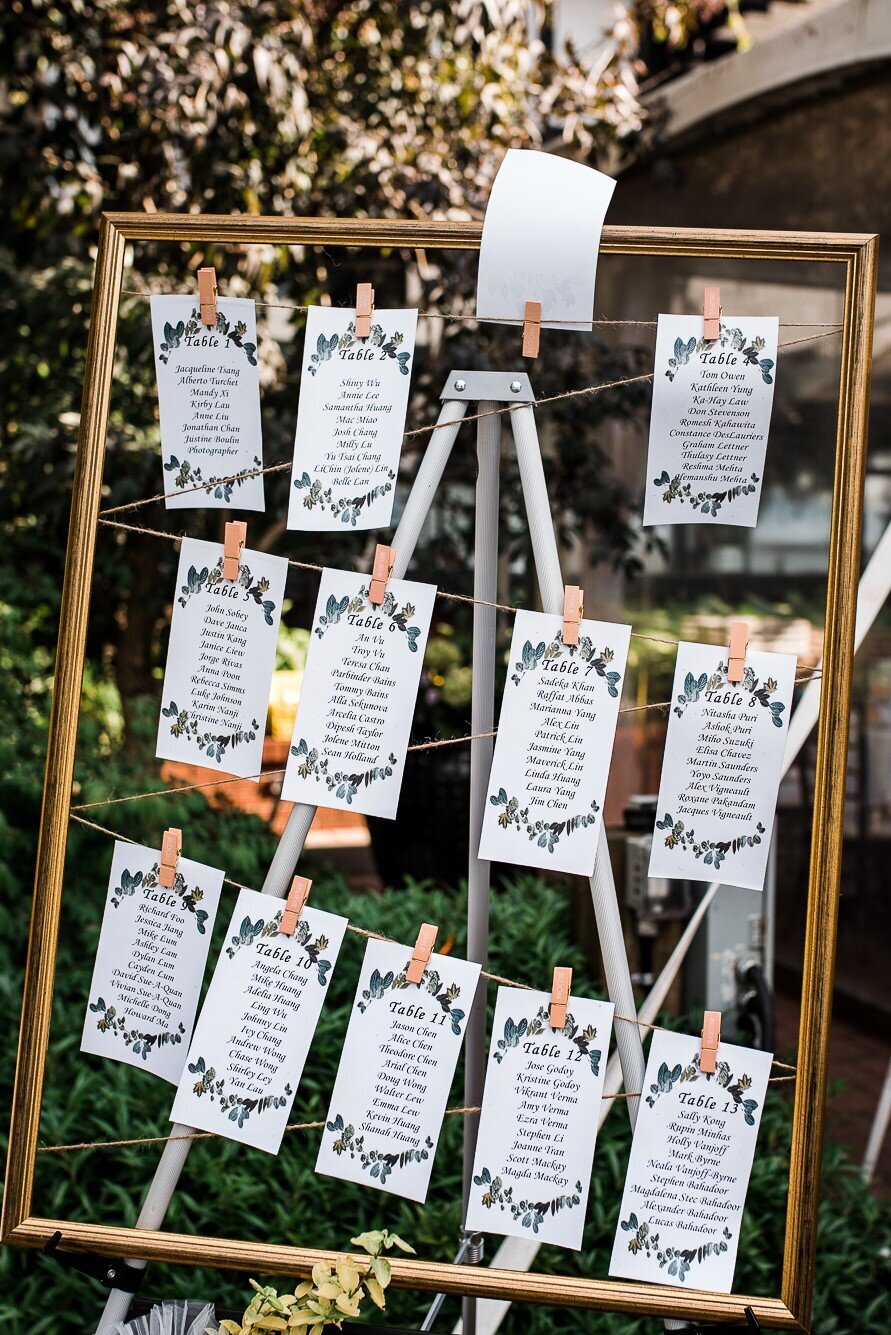 Table 1
Jacqueline Tsang
Alberto Turchet
Mandy Xi
Kirby Lau
Anne Liu
Jonathan Chan
Justine Boulin
Photographer
Table 2
Shiny Wu
Annie Lee
Samantha Huang
Mac Miao
Josh Chang
Milly Lu
Yu Tsai Chang
LiChin (Jolene) Lin
Belle Lan
Table 4
Tom Owen
Kathleen Yung
Ka-Hay Law
Don Stevenson
Romesh Kahawita
Constance DesLauriers
Graham Lettner
Thulasy Lettner
Reshma Mehta
Hemanshu Mehta
Table 5
John Sobey
Dave Janca
Justin Kang
Janice Lieu
Jorge Rivas
Anna Poon
Rebecca Simms
Luke Johnson
Karim Nanji
Christine Nanji
Table 6
An Vu
Troy Vu
Teresa Chan
Parbinder Bains
Tommy Bains
Alla Sekunova
Arcelia Castro
Dipesh Taylor
Jolene Mitton
Sean Holland
Table 7
Sadeka Khan
Raffat Abbas
Marianna Yang
Alex Lin
Patrick Lin
Jasmine Yang
Maverick Lin
Linda Huang
Laura Yang
Jim Chen
Table 8
Nitasha Puri
Ashok Puri
Miho Suzuki
Elisa Chavez
Martin Saunders
Yoyo Saunders
Alex Vigneault
Roxane Pakandam
Jacques Vigneault
Table 9
Richard Foo
Jessica Jiang
Mike Lum
Ashley Lam
Dylan Lum
Cayden Lum
David Sue-A-Quan
Vivian Sue-A-Quan
Michelle Dong
Howard Ma
Table 10
Angela Chang
Mike Huang
Adelia Huang
Ling Wu
Johnny Lin
Ivy Chang
Andrew Wong
Chase Wong
Shirley Ley
Yan Lau
Table 11
Jason Chen
Alice Chen
Theodore Chen
Arial Chen
Doug Wong
Walter Lew
Emma Lew
Kevin Huang
Shanah Huang
Table 12
Jose Godoy
Kristine Godoy
Vikrant Verma
Amy Verma
Ezra Verma
Stephen Li
Joanne Tran
Scott Mackay
Magda Mackay
Table 13
Sally Kong
Rupin Minhas
Holly Vanjoff
Mark Byrne
Neala Vanjoff-Byrne
Stephen Bahadoor
Magdalena Stec Bahadoor
Alexander Bahadoor
Lucas Bahadoor